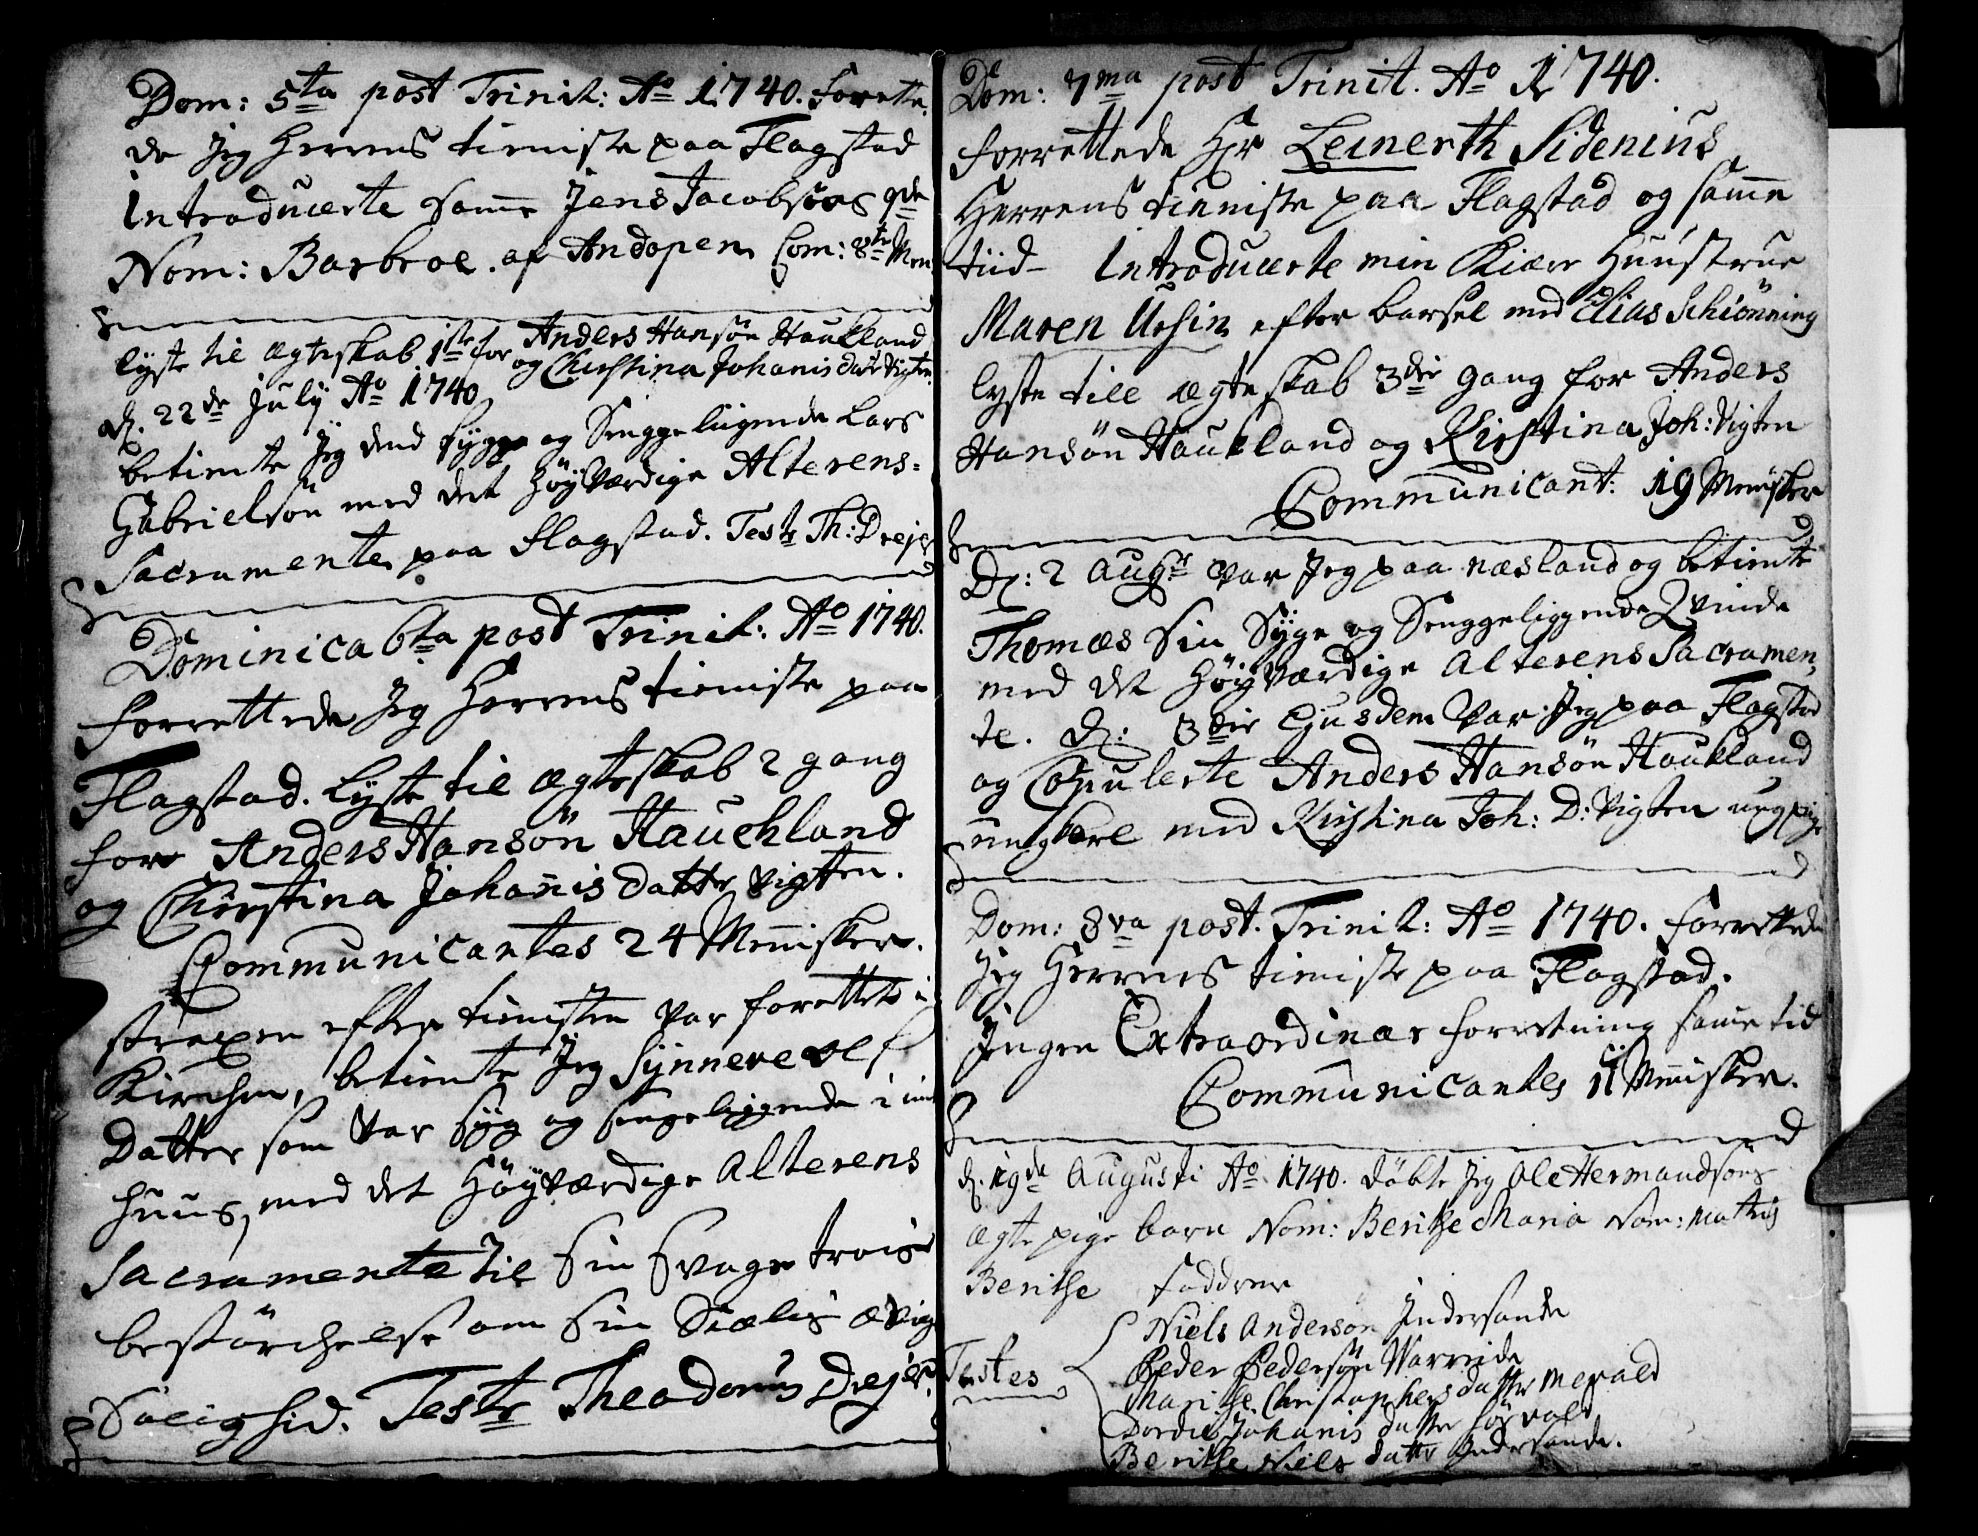 Dom: 5ta post Trinit: Ao 1740. Forette
de Jeg Herrens tieniste paa Flagstad
Introducerte samme Jens Jacobsøns qde
Nom: Barbroe. af Andopen Com: 8te Men
lyste til ægteskab 1ste for Anders Hansøn Haukland
og Christina Johanis datr Vigten.
d. 22de July Ao 1740
betiente Jeg dend syge og Senggeliigende Lars
Gabrielsøn med det Høyværdige Alterens-
Sacramente paa Flagstad. Teste Th: Drejer
Dominica 6ta post Trinit: Ao 1740.
forrettede Jeg Herrens tieniste paa
Flagstad. Lyste til ægteskab 2 gang
for Anders Hansøn Hauchland
og Christina Johanis datter Vigtten.
Communicantes 24 Mennisker.
straxen efter tienisten var forettet i
Kirchen, betiente Jeg Synneve Ols
Datter som var Syg og sengeliggende i
huus, med det Høyværdige Alterens
Sacramente til sin svage trois
bestørchelse om sin Siælis ævig
Salighed. Teste Theodorus Drejer.
Dom: 7ma post Trinit. Ao 1740.
forrettede Hr Leinerth Sidenius
Herrens tieniste paa Flagstad og samme
tiid Introducerte min Kiære Huustrue
Maren Ursin efter barsel med Elias Schiønning
lyste till ægteskab 3die gang for Anders
Hansøn Haukland og Kirstina Joh: Vigten
Communicant: 19 Mennisker
D: 2 Augst var Jeg paa næsland og betiente
Thomæs Sin Syge og Senggeliggende Qvinde
med det Høyværdige Alterens Sacramen-
te. d: 3die Ejusdem var Jeg paa Flagstad
og Copulerte Anders Hansøn Haukland
ungkarl med Kirstina Joh: D: Vigten ung pige
Dom: 8va post. Trinit: Ao 1740. forrettede
Jeg Herrens tieniste paa Flagstad.
Ingen Extraordinær forretning samme tid
Communicantes 11 Mennisker.
d. 19de Augusti Ao 1740. døbte Jeg Ole Hermandsøns
ægte pige barn Nom: Berithe Maria Nom: Matris
Berithe Faddrene
Testes
Niels Andersøn Indersande
Peder Pedersøn Warreide
Marithe Christophersdatter Mevold
Dordie Johanis datter
Berithe Niels datter Indersande.